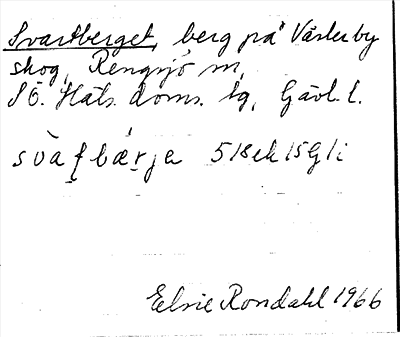 Svartberget, berg på Västerby
skog, Rengsjö sn,
SÖ. Häls. doms. tg, Gävl. l.
svaƭbærje 518ek15G1i
Elsie Rondahl 1966